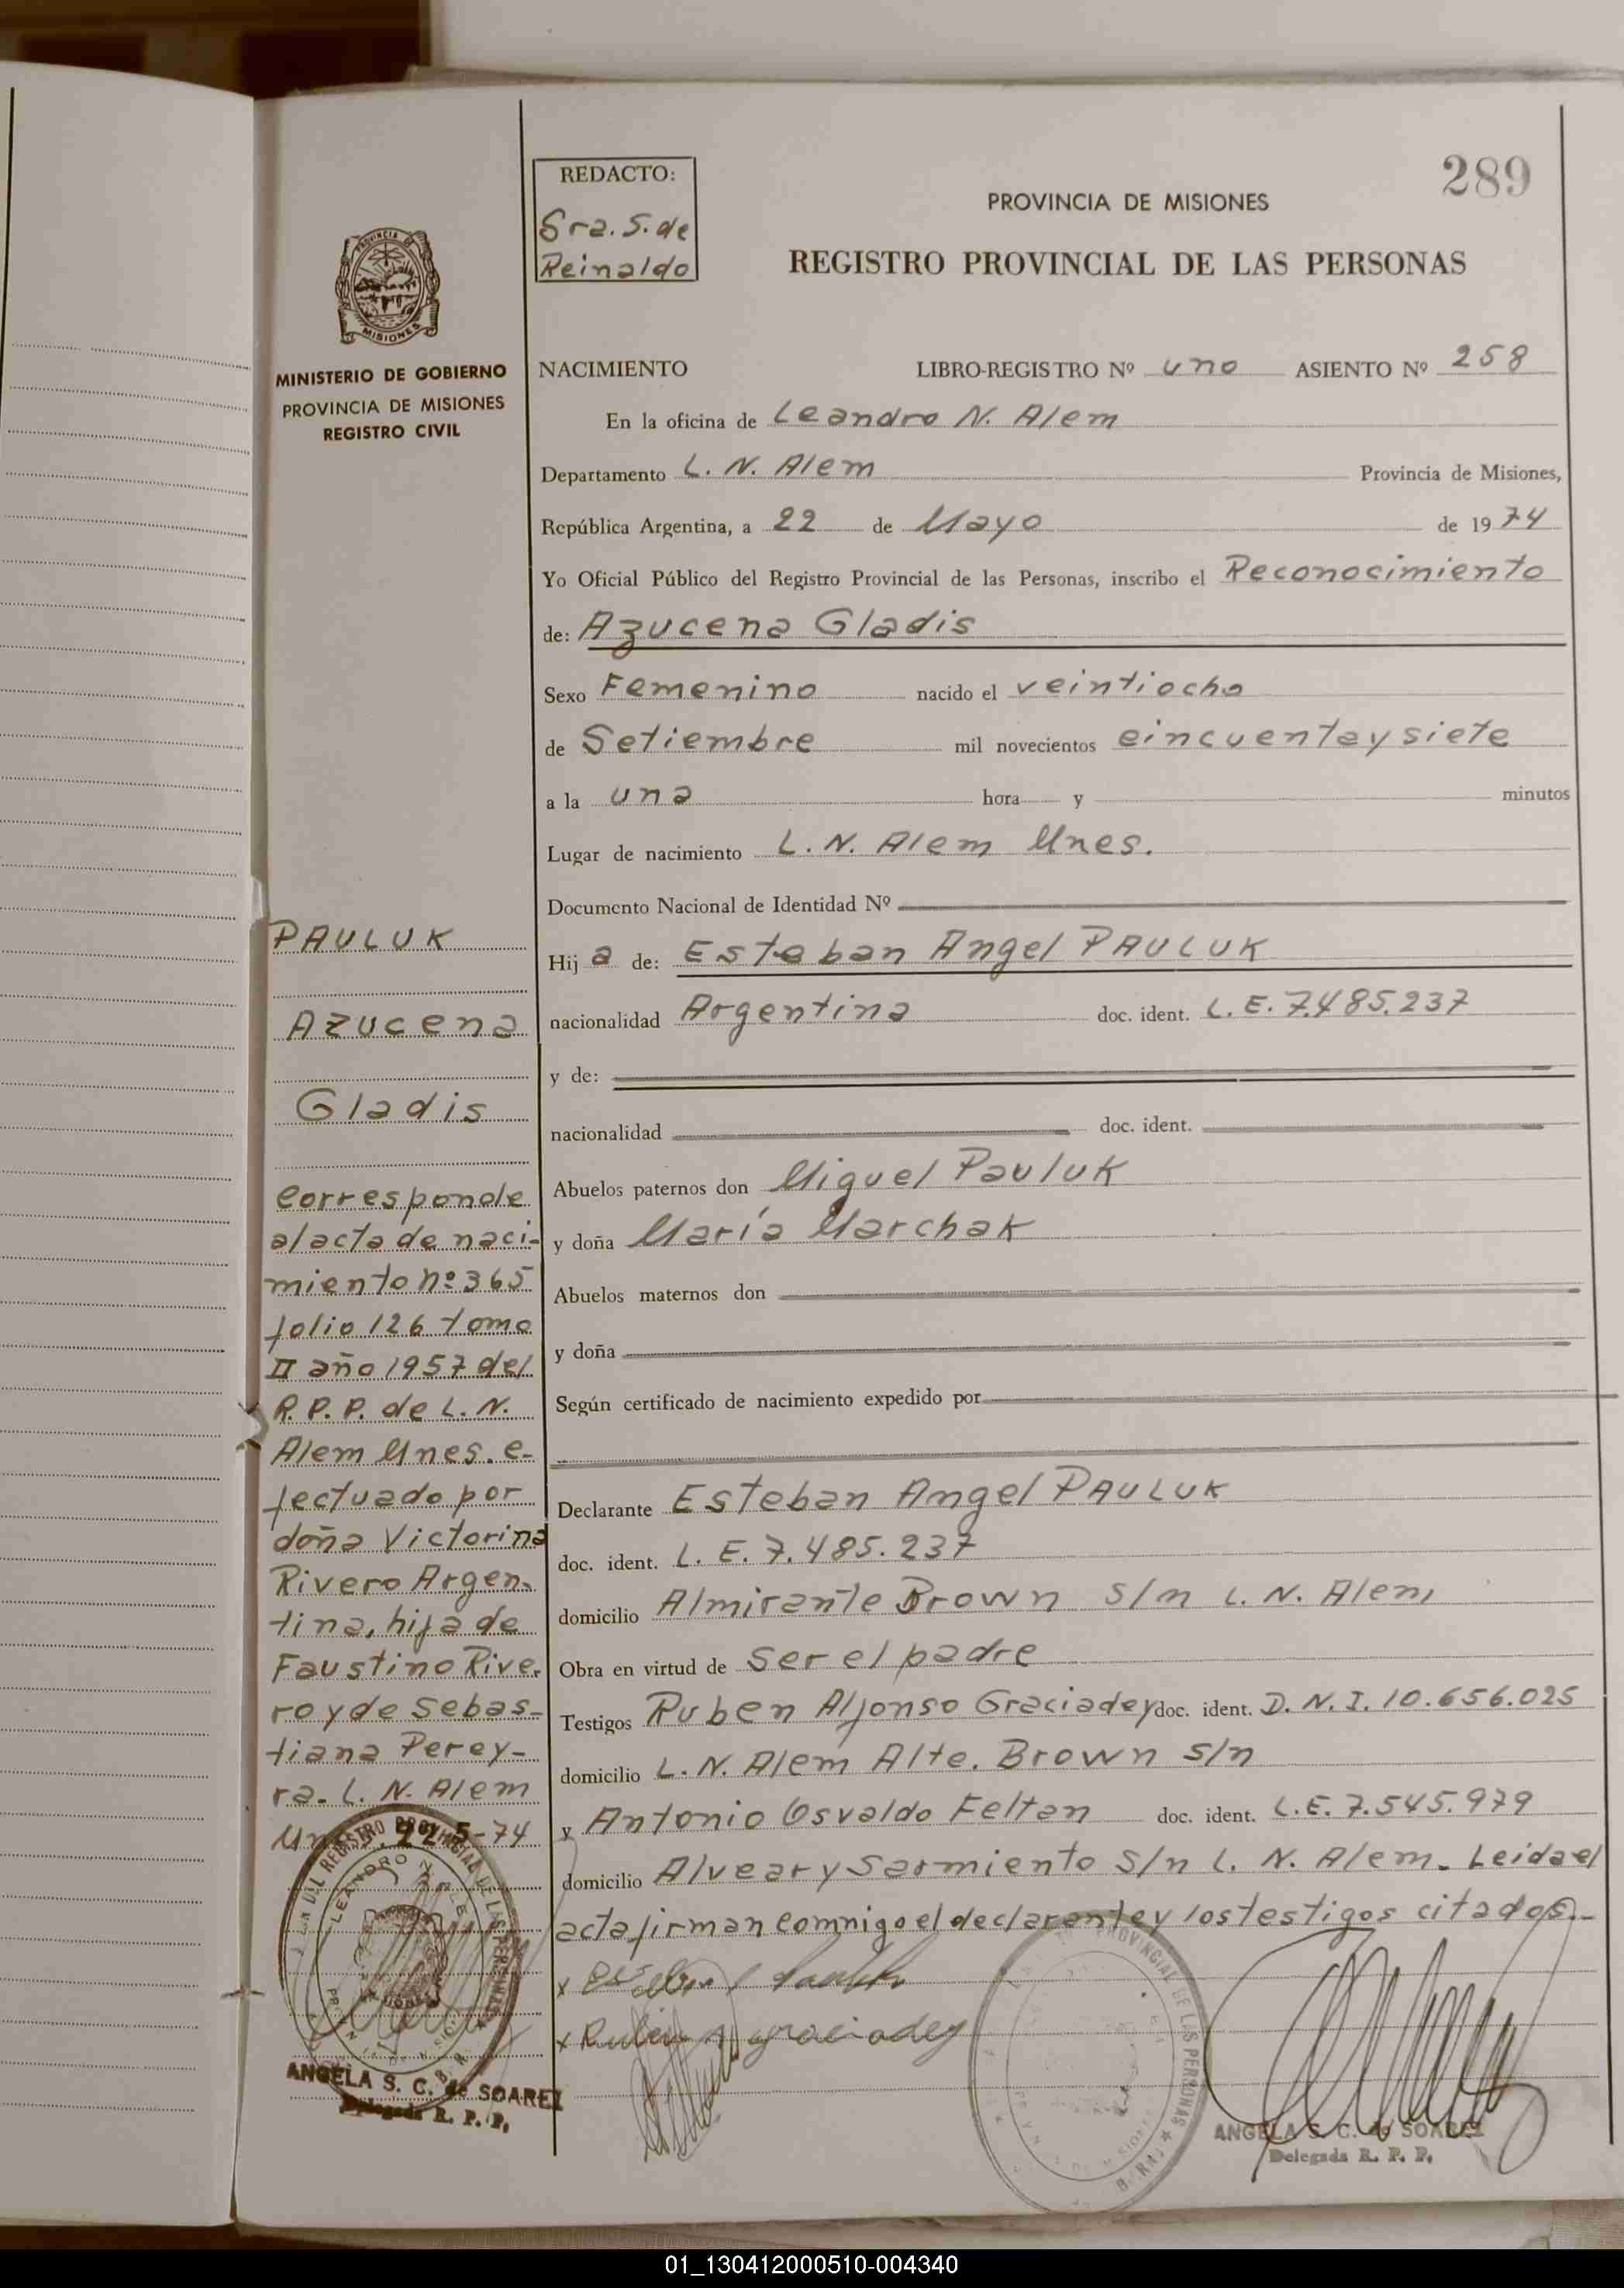 289
REDACTO:
Sra. S. de
Reinaldo
PROVINCIA DE MISIONES
REGISTRO PROVINCIAL DE LAS PERSONAS
PROVINCIA DE
MISIONES
MINISTERIO DE GOBIERNO
PROVINCIA DE MISIONES
REGISTRO CIVIL
NACIMIENTO LIBRO-REGISTRO Nº uno ASIENTO Nº 258
En la oficina de Leandro N. Alem
Departamento L. N. Alem Provincia de Misiones,
República Argentina, a 22 de Mayo de 1974
Yo Oficial Público del Registro Provincial de las Personas, inscribo el Reconocimiento
de: Azucena Gladis
Sexo Femenino nacido el veintiocho
de Setiembre mil novecientos cincuenta y siete
a la una hora y minutos
Lugar de nacimiento L. N. Alem Mnes.
Documento Nacional de Identidad Nº
Hija de: Esteban Angel PAULUK
nacionalidad Argentina doc. ident. L. E. 7.485.237
y de:
nacionalidad doc. ident.
Abuelos paternos don Miguel Pauluk
y doña María Marchak
Abuelos maternos don
y doña
Según certificado de nacimiento expedido por
Declarante Esteban Angel PAULUK
doc. ident. L. E. 7.485.237
domicilio Almirante Brown s/n L. N. Alem
Obra en virtud de ser el padre
Testigos Ruben Alfonso Graciadey doc. ident. D. N. I. 10.656.025
domicilio L. N. Alem Alte. Brown s/n
y Antonio Osvaldo Feltan doc. ident. L.E. 7.545.979
domicilio Alvear y Sarmiento s/n L. N. Alem. Leida el
acta firman conmigo el declarante y los testigos citados.-
PAULUK
Azucena
Gladis
Corresponde
al acta de naci-
miento nº 365
folio 126 tomo
II año 1957 del
R. P. P. de L. N.
Alem Mnes. e-
fectuado por
doña Victorina
Rivero Argen-
tina, hija de
Faustino Rive-
ro y de Sebas-
tiana Perey-
ra. L. N. Alem
Mnes. 22-5-74
ANGELA S. C. de SOAREZ
Delegada R. P. P.
x Ruben A graciadey
PROVINCIAL DE LAS PERSONAS
ANGELA S. C. de SOAREZ
Delegada R. P. P.
01_130412000510-004340